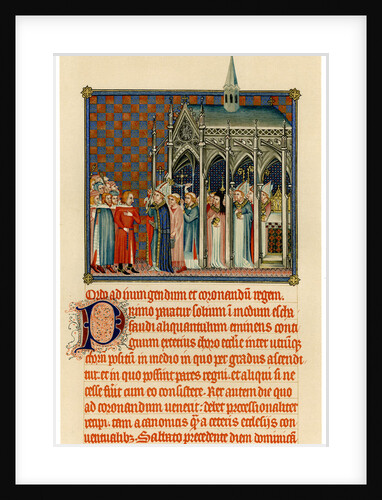 Ordo ad inungendum et coronandū regem.
Primo paratur solium ī modum escha
faudi aliquantulum eminens conti
guum exterius choro ecclīe inter utrūqꝫ
chorū positū in medio in quo per gradus ascendi
tur et in quo possint pares regni et aliqui si ne
cesse fuīt cum eo consistere. Rex autem die quo
ad coronandum uenerit debet processionaliter
recipi tam a canonicis qͣ a ceteris ecclesijs con
uentualibꝫ. Sabbato precedente diem dominicā